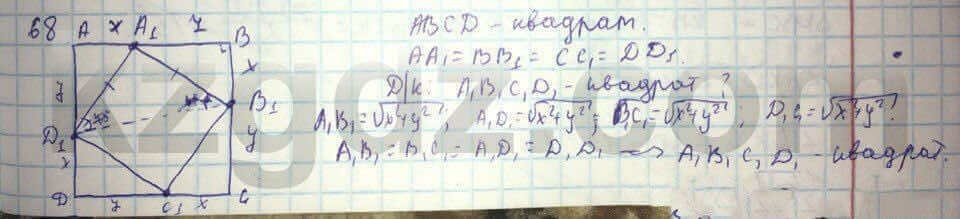 68 A x A₁ y B
y x
B₁
D₁ y
x
D y C₁ x C
ABCD - квадрат.
AA₁ = BB₁ = CC₁ = DD₁.
Д/к: A₁B₁C₁D₁ - квадрат?
A₁B₁ = √x²+y²; A₁D₁ = √x²+y²; B₁C₁ = √x²+y²; D₁C₁ = √x²+y²?
A₁B₁ = B₁C₁ = A₁D₁ = D₁D₁ → A₁B₁C₁D₁ - квадрат.
kzgdz.com